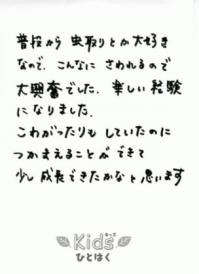 普段から 虫取りとか大好き
なので、こんなに さわれるので
大興奮でした。楽しい経験
になりました。
こわがったりも していたのに
つかまえることが できて
少し成長できたかなと思います
Kids
キッズ
ひとはく